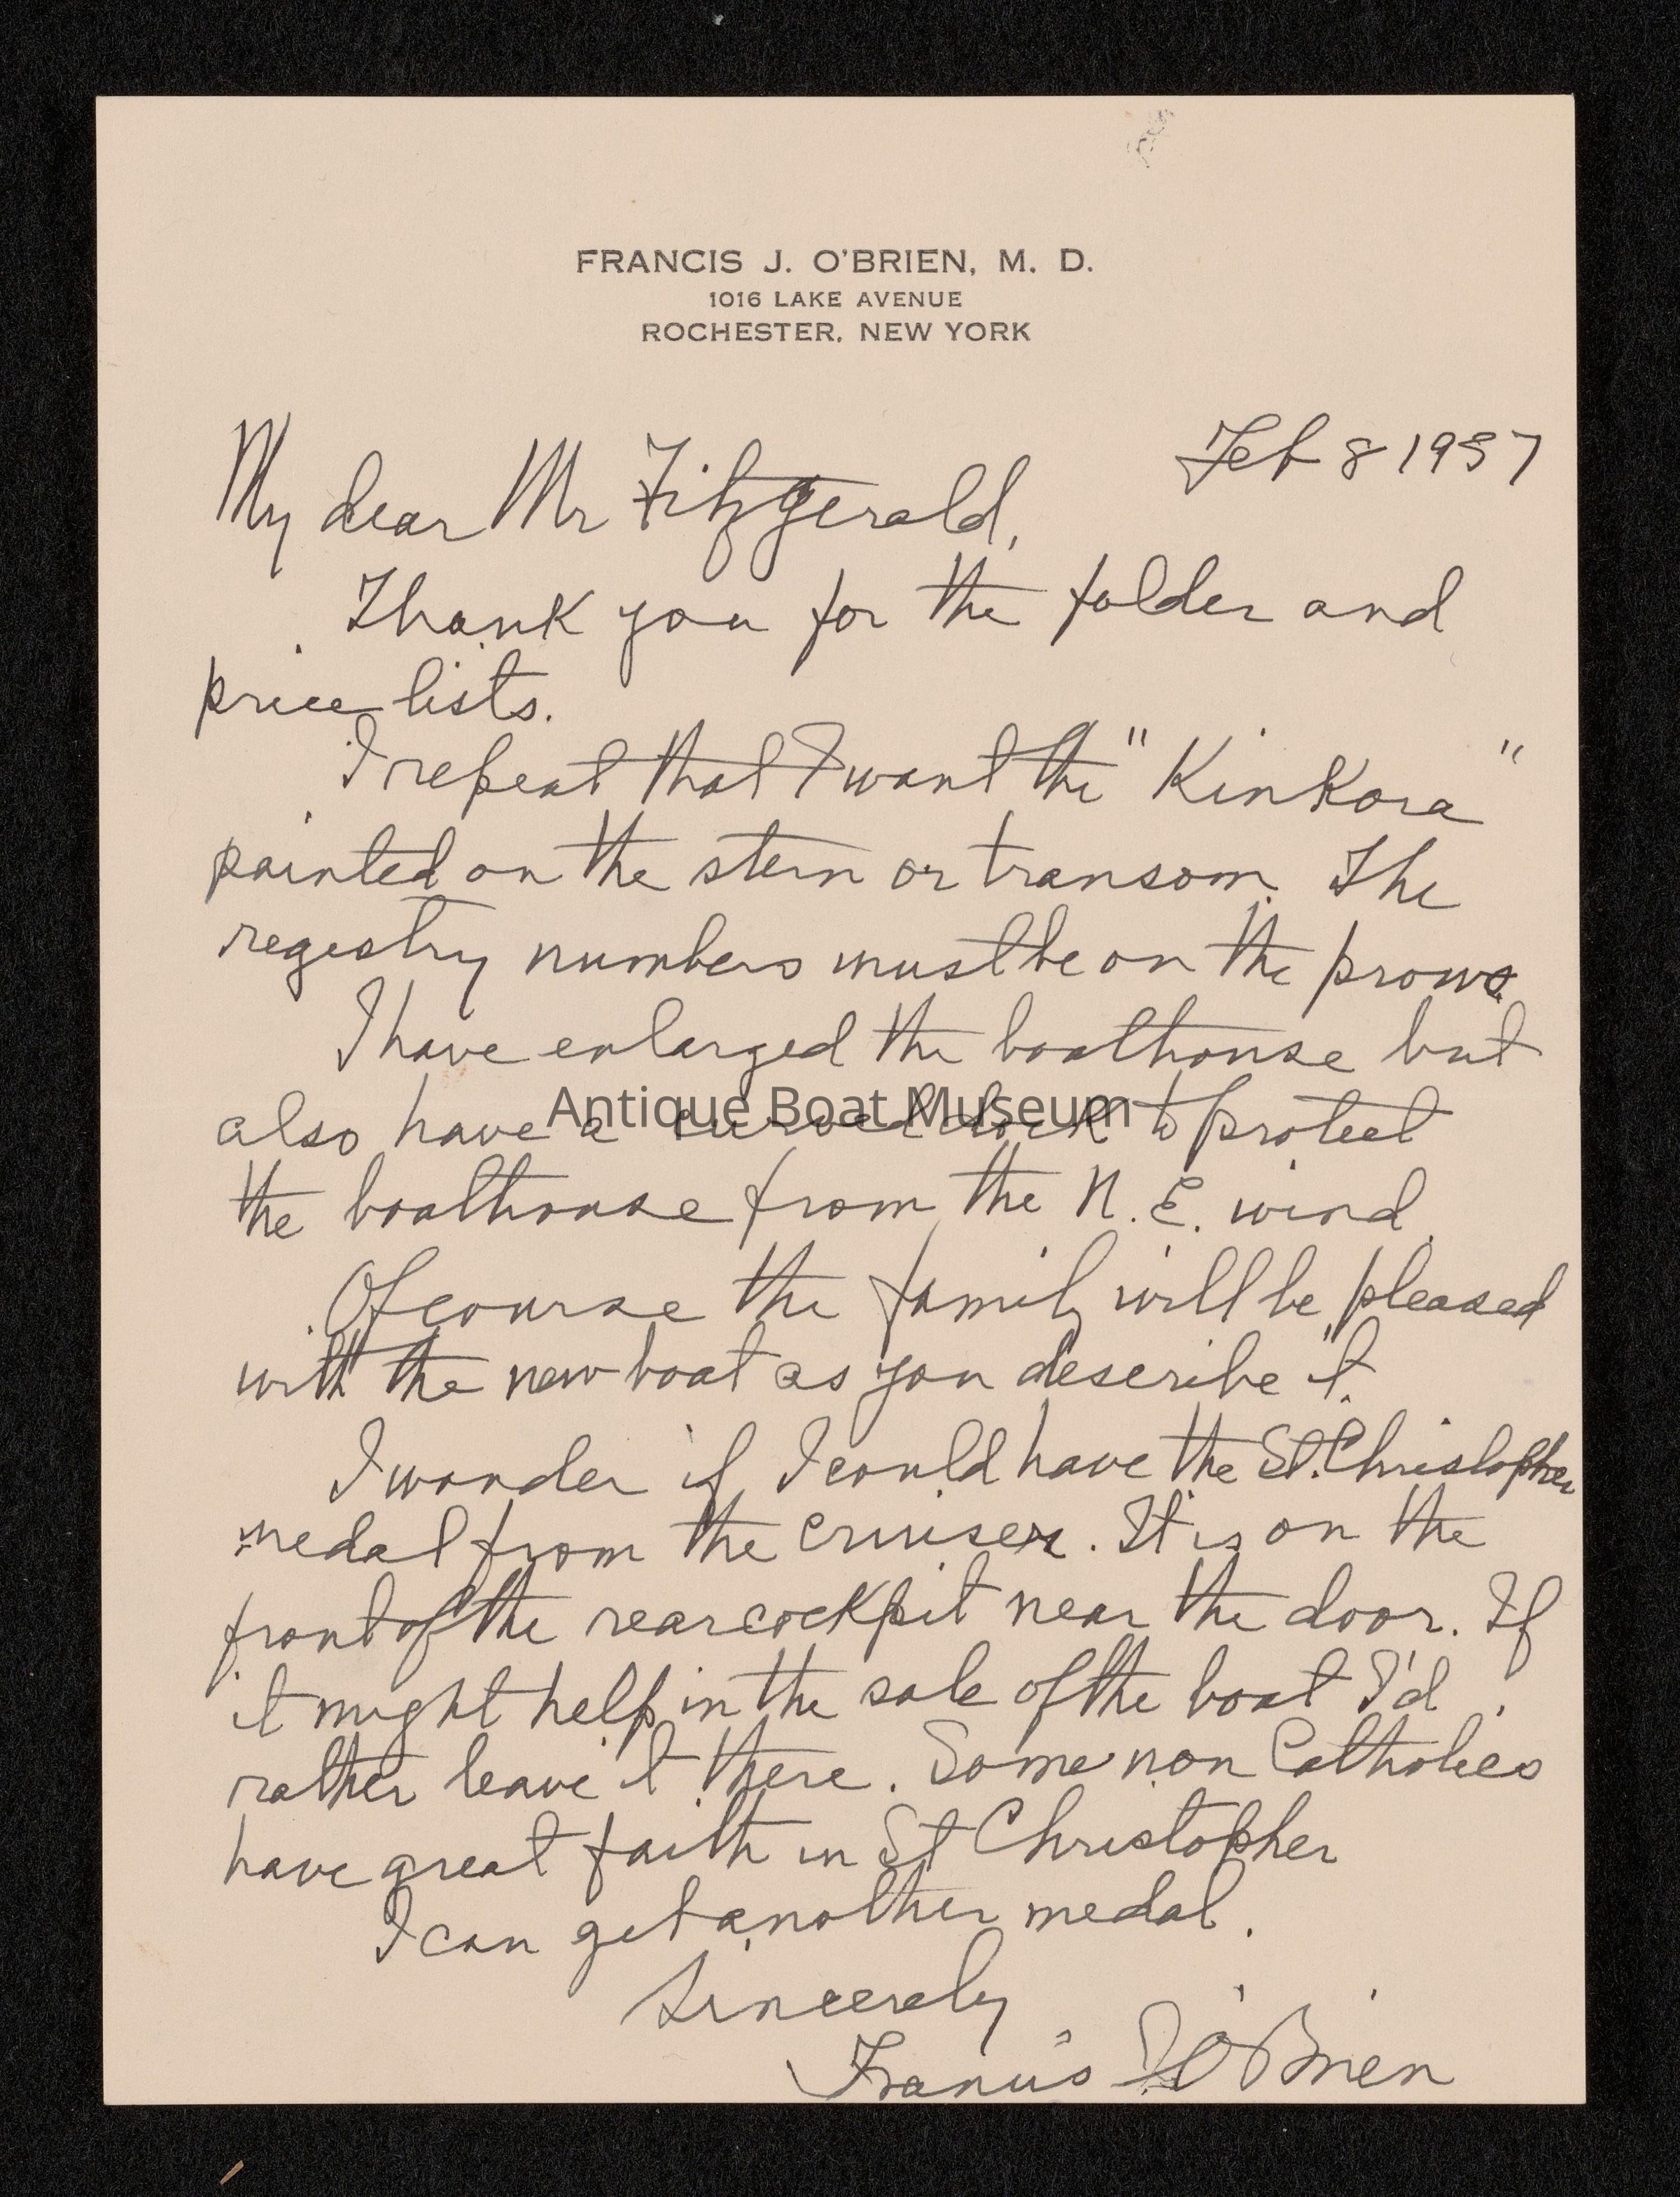 FRANCIS J. O'BRIEN, M. D.
1016 LAKE AVENUE
ROCHESTER, NEW YORK
Feb 8 1957
My dear Mr Fitzgerald,
Thank you for the folder and
price lists.
I repeat that I want the "Kinkora"
painted on the stern or transom. The
registry numbers must be on the prow.
I have enlarged the boathouse but
also have a curved dock to protect
Antique Boat Museum
the boathouse from the N. E. wind.
Of course the family will be pleased
with the new boat as you describe it.
I wonder if I could have the St. Christopher
medal from the cruiser. It is on the
front of the rear cockpit near the door. If
it might help in the sale of the boat I'd
rather leave it there. Some non Catholics
have great faith in St Christopher
I can get another medal.
Sincerely
Francis J O'Brien